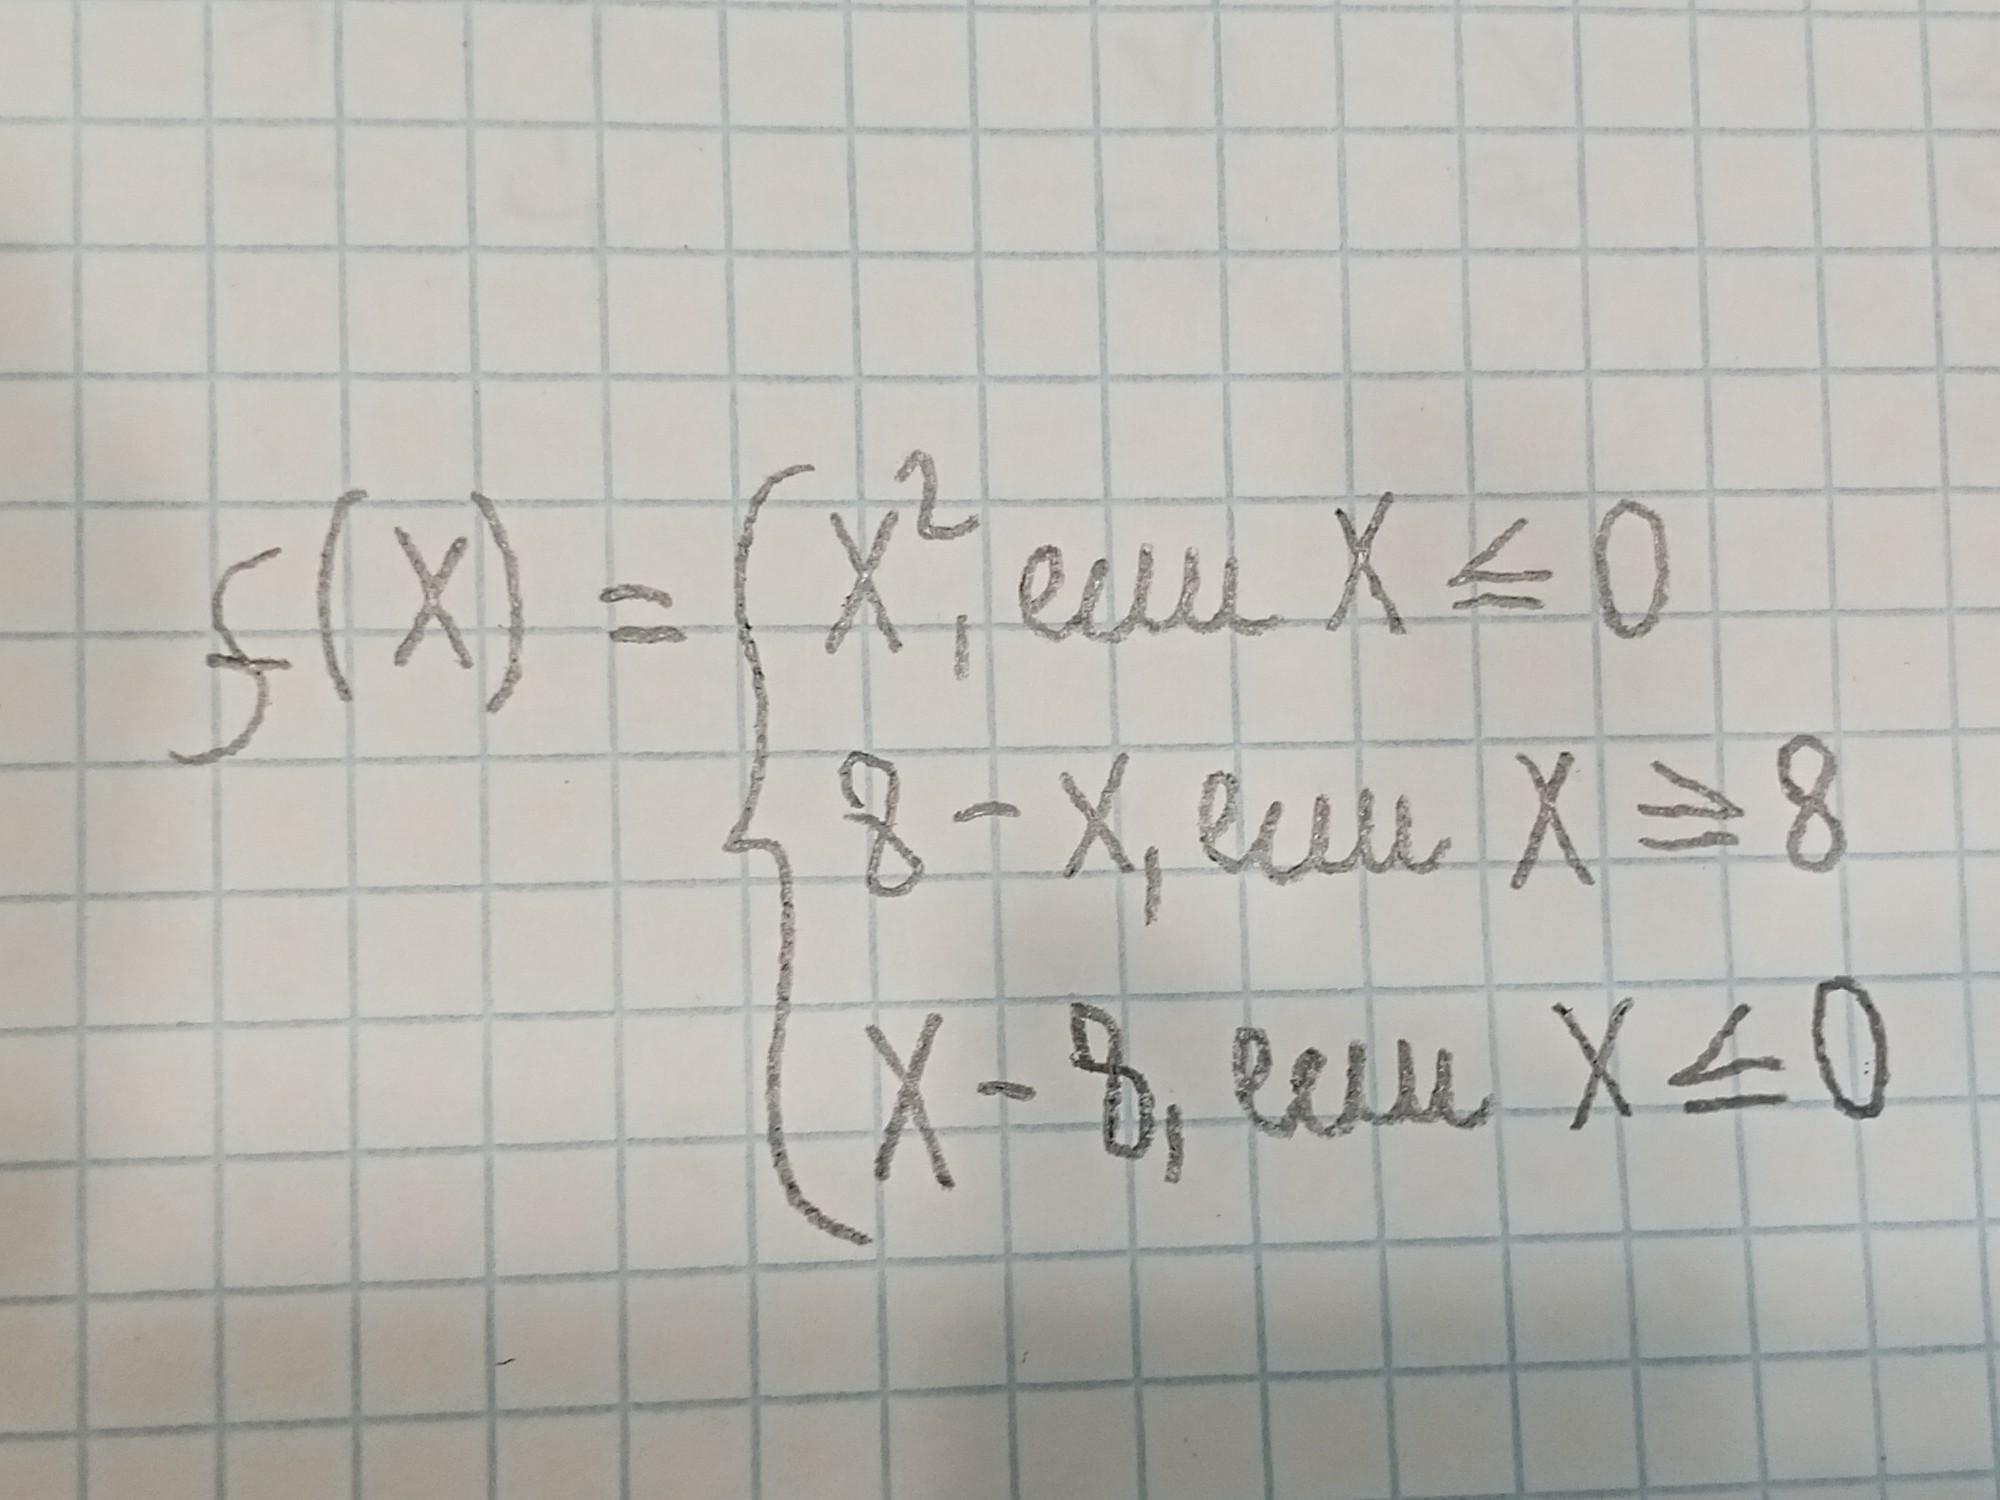 f(x) = { x², если x ≤ 0
8 - x, если x ≥ 8
x - 8, если x ≤ 0